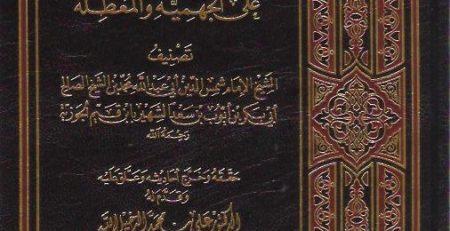 على الجهمية والمعطلة
تصنيف
الشيخ الإمام شمس الدين أبي عبد الله محمد بن الشيخ الصالح
أبي بكر بن أيوب بن سعد الشهير بابن قيم الجوزية
رحمه الله
حققه وخرج أحاديثه وعلق عليه
وقدم له
الدكتور علي بن محمد الدخيل الله